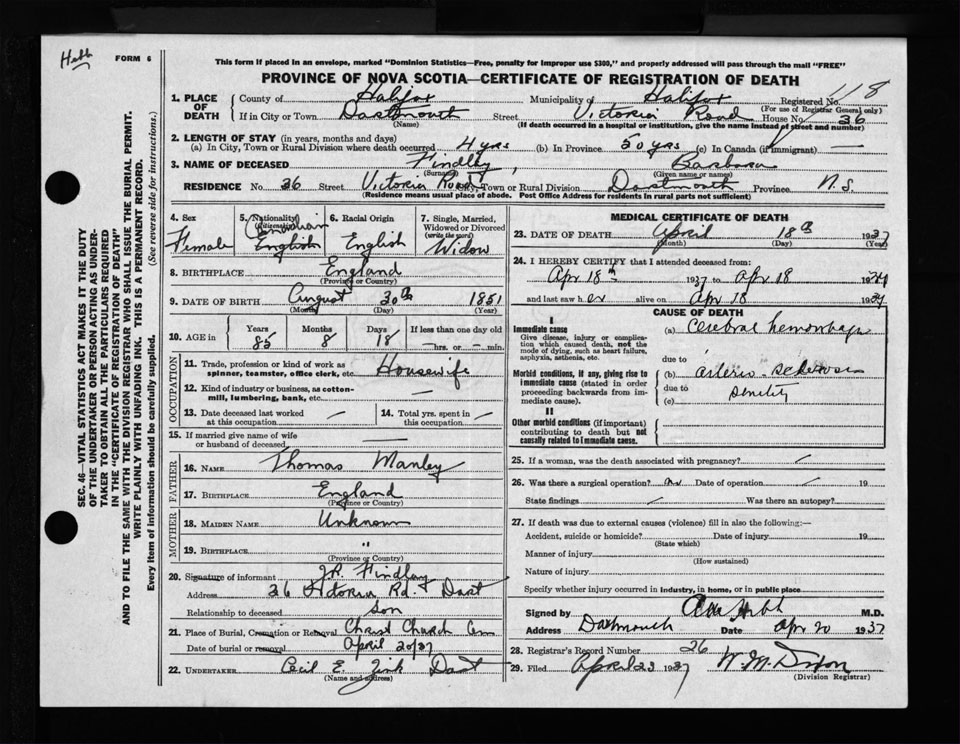 Hebb
FORM 6
This form if placed in an envelope, marked "Dominion Statistics—Free, penalty for improper use $300," and properly addressed will pass through the mail "FREE"
PROVINCE OF NOVA SCOTIA—CERTIFICATE OF REGISTRATION OF DEATH
1. PLACE OF DEATH County of Halifax Municipality of Halifax Registered No. 118
(For use of Registrar General only)
If in City or Town Dartmouth Street Victoria Road House No. 36
(Name) (If death occurred in a hospital or institution, give the name instead of street and number)
2. LENGTH OF STAY (in years, months and days)
(a) In City, Town or Rural Division where death occurred 4 yrs (b) In Province 50 yrs (c) In Canada (if immigrant) —
3. NAME OF DECEASED Findley, Barbara
(Surname) (Given name or names)
RESIDENCE No. 36 Street Victoria Road City, Town or Rural Division Dartmouth Province N.S.
(Residence means usual place of abode. Post Office Address for residents in rural parts not sufficient)
4. Sex Female
5. Nationality (Citizenship) Canadian English
6. Racial Origin English
7. Single, Married, Widowed or Divorced (write the word) Widow
8. BIRTHPLACE England
(Province or Country)
9. DATE OF BIRTH August 30th 1851
(Month) (Day) (Year)
10. AGE in Years 85 Months 8 Days 18 If less than one day old
—hrs. or —min.
OCCUPATION
11. Trade, profession or kind of work as spinner, teamster, office clerk, etc. Housewife
12. Kind of industry or business, as cotton-mill, lumbering, bank, etc. —
13. Date deceased last worked at this occupation —
14. Total yrs. spent in this occupation —
15. If married give name of wife or husband of deceased —
FATHER
16. NAME Thomas Manley
17. BIRTHPLACE England
(Province or Country)
MOTHER
18. MAIDEN NAME Unknown
19. BIRTHPLACE "
(Province or Country)
20. Signature of informant J.R. Findley
Address 36 Victoria Rd. Dart
Relationship to deceased Son
21. Place of Burial, Cremation or Removal Christ Church Cem
Date of burial or removal April 20/37
22. UNDERTAKER Cecil E. Zink Dart
(Name and address)
MEDICAL CERTIFICATE OF DEATH
23. DATE OF DEATH April 18th 1937
(Month) (Day) (Year)
24. I HEREBY CERTIFY that I attended deceased from:
Apr 18th 1937 to Apr 18 1937
and last saw her alive on Apr 18 1937
CAUSE OF DEATH
I
Immediate cause
Give disease, injury or complication which caused death, not the mode of dying, such as heart failure, asphyxia, asthenia, etc.
(a) Cerebral hemorrhage
due to
Morbid conditions, if any, giving rise to immediate cause (stated in order proceeding backwards from immediate cause).
(b) arterio-sclerosis
due to
(c) Senility
II
Other morbid conditions (if important) contributing to death but not causally related to immediate cause.
25. If a woman, was the death associated with pregnancy? —
26. Was there a surgical operation? no Date of operation — 19
State findings — Was there an autopsy?
27. If death was due to external causes (violence) fill in also the following:—
Accident, suicide or homicide? Date of injury 19
(State which)
Manner of injury
(How sustained)
Nature of injury
Specify whether injury occurred in industry, in home, or in public place
Signed by Hebb M.D.
Address Dartmouth Date Apr 20 1937
28. Registrar's Record Number 26
29. Filed April 23 1937 W. M. Dixon
(Division Registrar)
SEC. 46—VITAL STATISTICS ACT MAKES IT THE DUTY
OF THE UNDERTAKER OR PERSON ACTING AS UNDER-
TAKER TO OBTAIN ALL THE PARTICULARS REQUIRED
IN THE "CERTIFICATE OF REGISTRATION OF DEATH"
AND TO FILE THE SAME WITH THE DIVISION REGISTRAR WHO SHALL ISSUE THE BURIAL PERMIT.
WRITE PLAINLY WITH UNFADING INK. THIS IS A PERMANENT RECORD.
Every item of information should be carefully supplied. (See reverse side for instructions.)